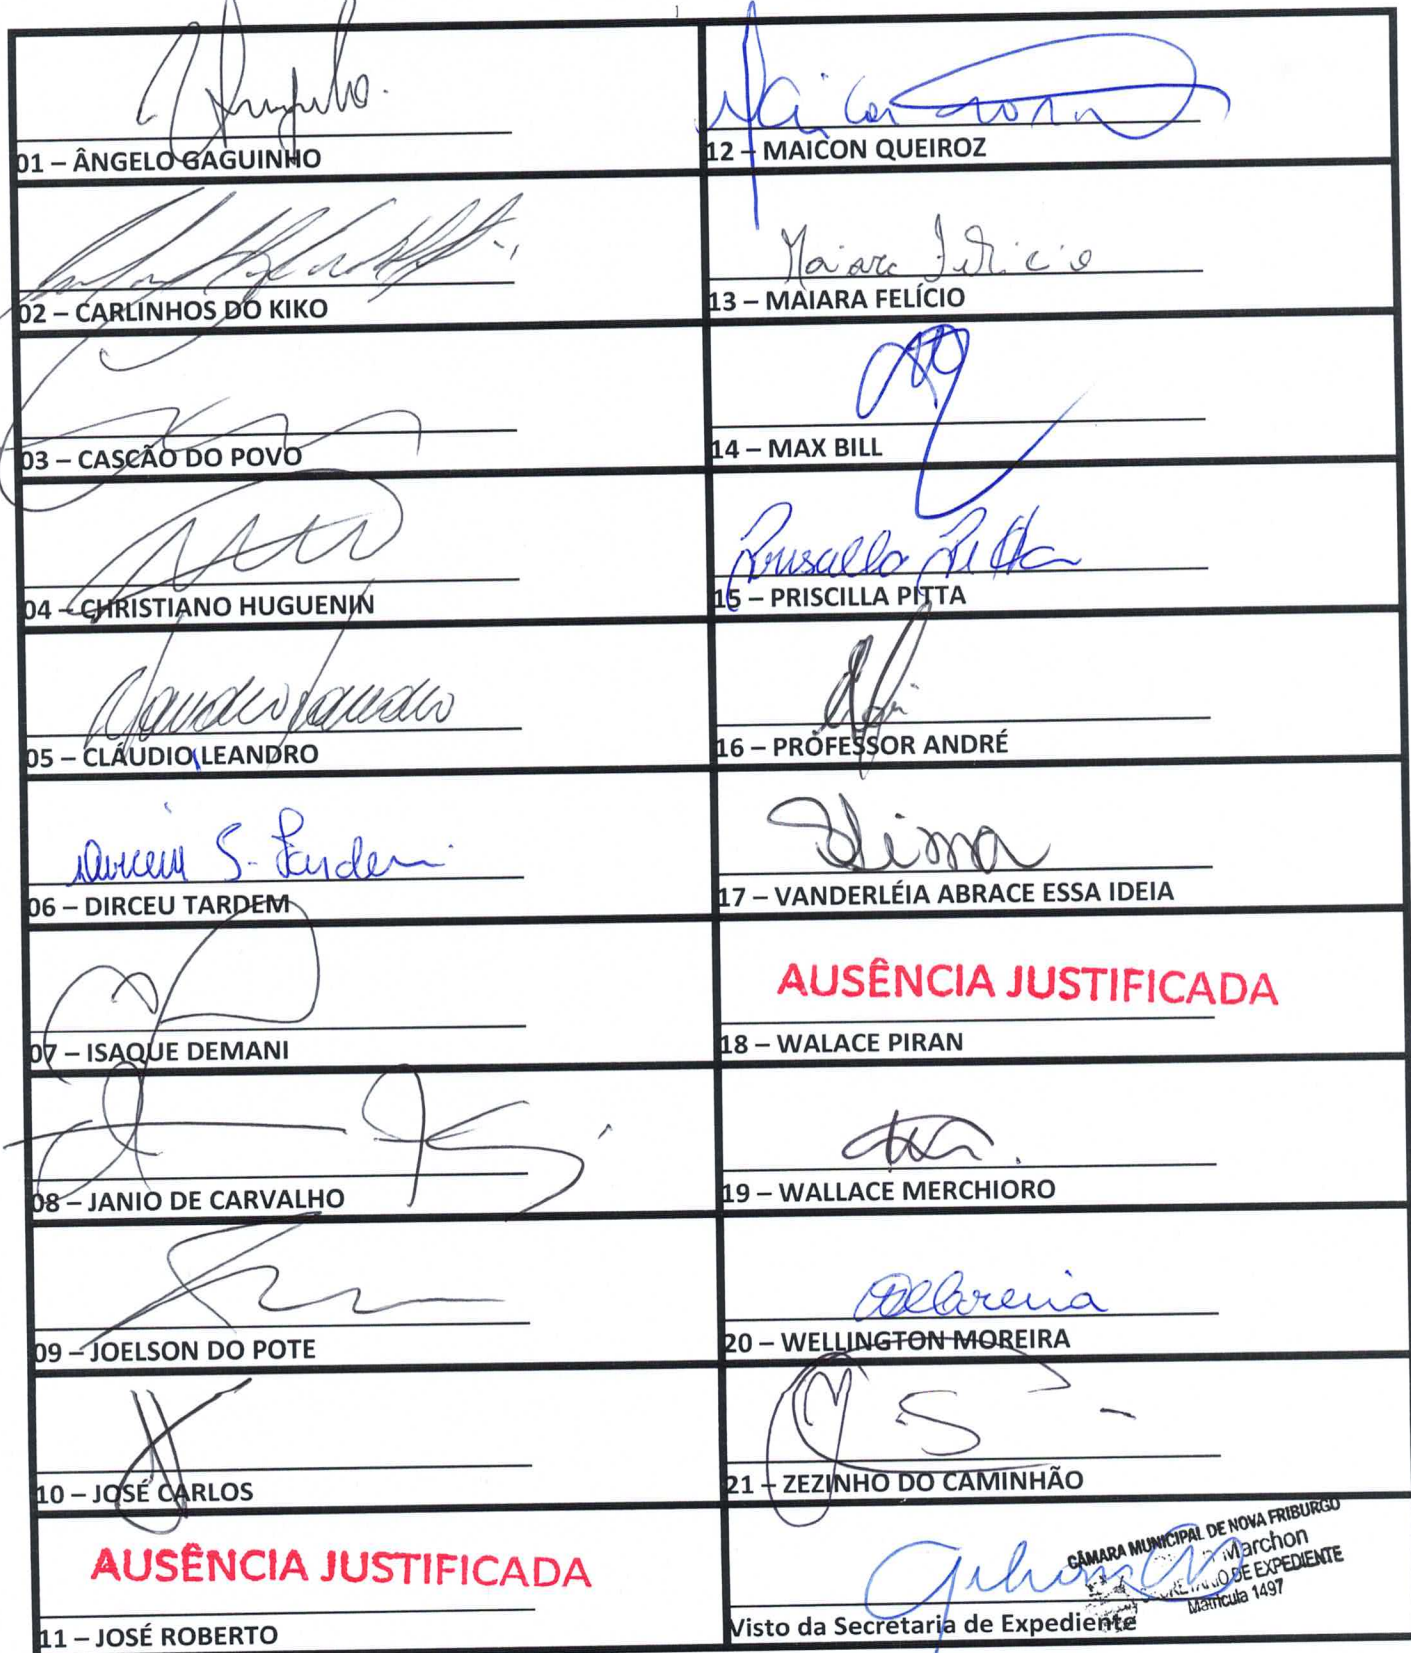 01 – ÂNGELO GAGUINHO
02 – CARLINHOS DO KIKO
03 – CASCÃO DO POVO
04 – CHRISTIANO HUGUENIN
Claudio Leandro
05 – CLÁUDIO LEANDRO
Dirceu S. Tardem
06 – DIRCEU TARDEM
07 – ISAQUE DEMANI
08 – JANIO DE CARVALHO
09 – JOELSON DO POTE
10 – JOSÉ CARLOS
AUSÊNCIA JUSTIFICADA
11 – JOSÉ ROBERTO
Maicon
12 – MAICON QUEIROZ
Maiara Felicio
13 – MAIARA FELÍCIO
14 – MAX BILL
Priscilla Pitta
15 – PRISCILLA PITTA
16 – PROFESSOR ANDRÉ
17 – VANDERLÉIA ABRACE ESSA IDEIA
AUSÊNCIA JUSTIFICADA
18 – WALACE PIRAN
19 – WALLACE MERCHIORO
20 – WELLINGTON MOREIRA
21 – ZEZINHO DO CAMINHÃO
CÂMARA MUNICIPAL DE NOVA FRIBURGO
Marchon
DE EXPEDIENTE
Matrícula 1497
Visto da Secretaria de Expediente